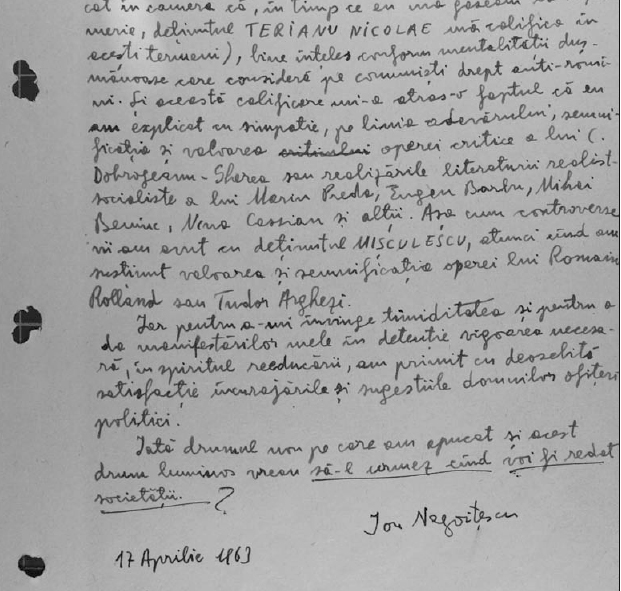 cat în camera că, în timp ce eu mă găseam
merie, deținutul TERIANU NICOLAE mă califica în
acești termeni), bine înțeles conform mentalității duș-
mănoase care consideră pe comuniști drept anti-româ-
ni. Și această calificare mi-a atras-o faptul că eu
am explicat cu simpatie, pe linia adevărului, semni-
ficația și valoarea criticului operei critice a lui C.
Dobrogeanu-Gherea sau realizările literaturii realist-
socialiste a lui Marin Preda, Eugen Barbu, Mihai
Beniuc, Nina Cassian și alții. Așa cum controverse
vii am avut cu deținutul MISCULESCU, atunci cînd am
susținut valoarea și semnificația operei lui Romain
Rolland sau Tudor Arghezi.
Iar pentru a-mi învinge timiditatea și pentru a
da manifestărilor mele în detenție vigoarea necesa-
ră, în spiritul reeducării, am primit cu deosebită
satisfacție încurajările și sugestiile domnilor ofițeri
politici.
Iată drumul nou pe care am apucat și acest
drum luminos vreau să-l urmez cînd voi fi redat
societății. ?
Ion Negoițescu
17 Aprilie 1963